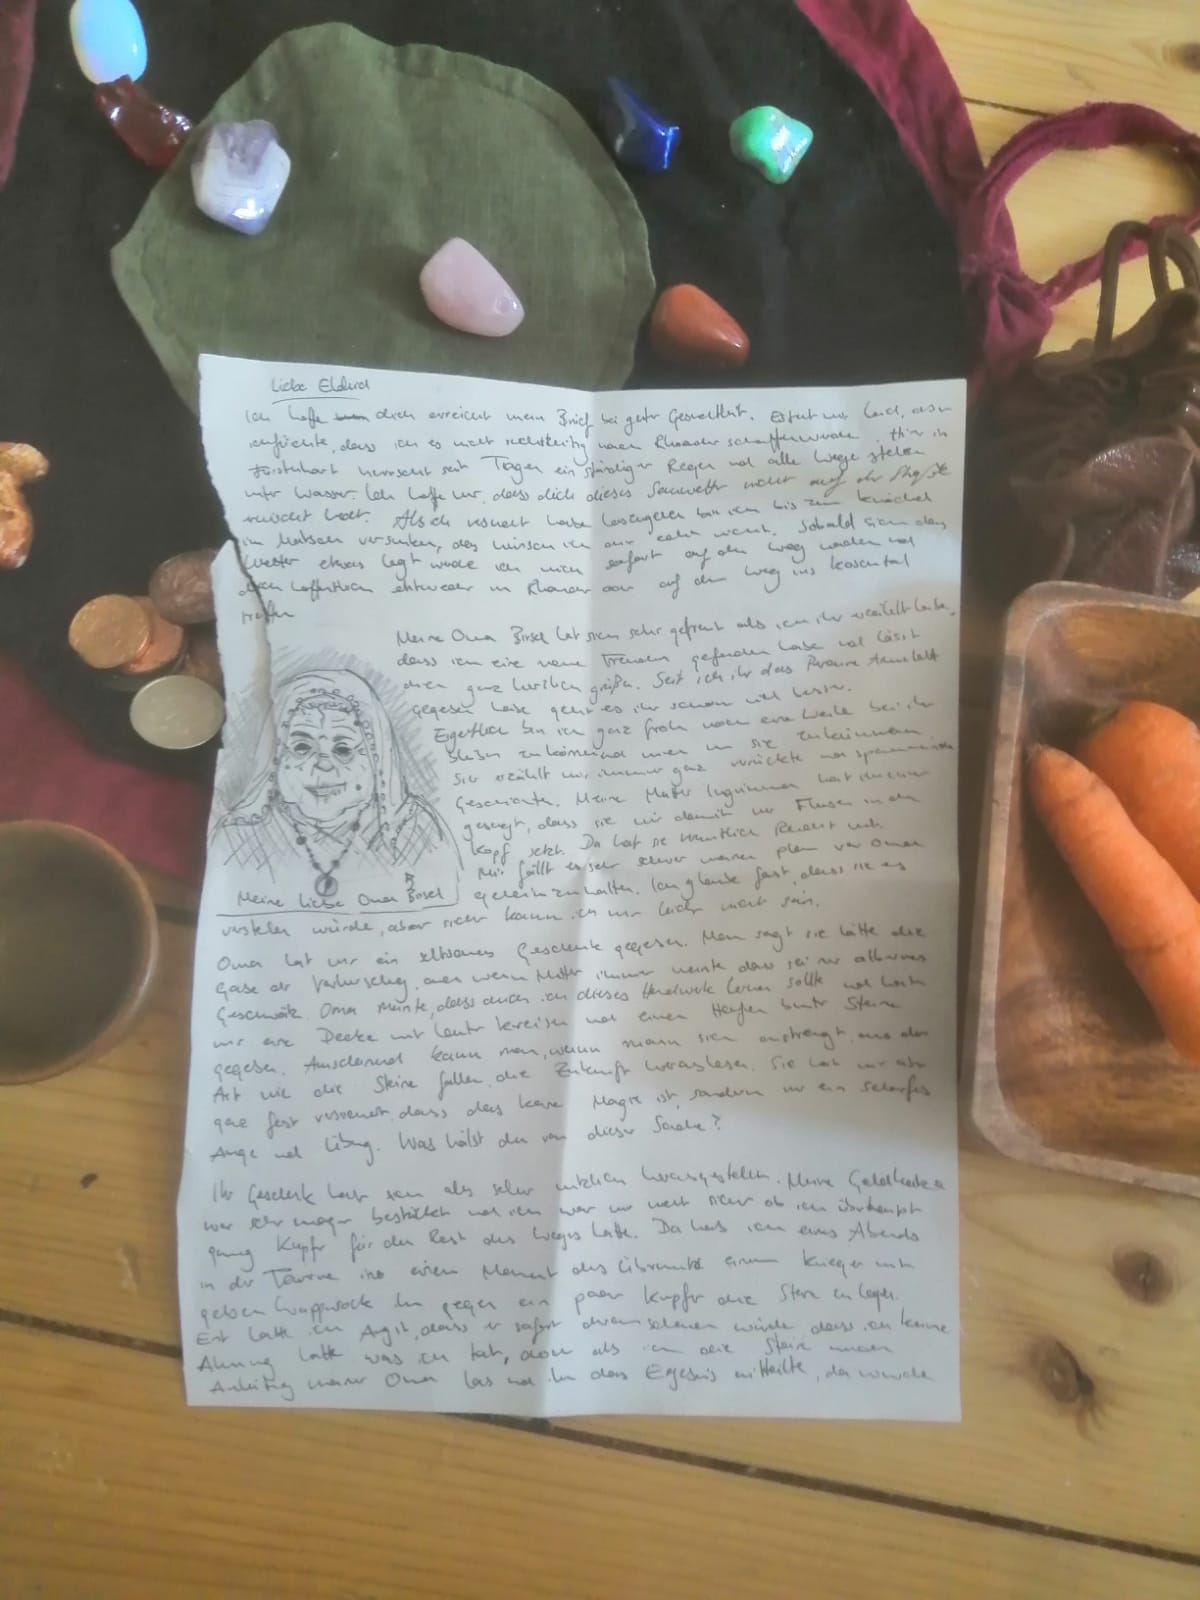 Liebe Eldurd
Ich hoffe dich erreicht mein Brief bei guter Gesundheit. Es tut mir leid, aber
ich fürchte, dass ich es nicht rechtzeitig nach Rhonder schaffen werde. Hier in
herrscht seit Tagen ein ständiger Regen und alle Wege stehen
unter Wasser. Ich hoffe nur, dass dich dieses Sauwetter nicht auf der Straße
erwischt hat. Als ich versucht habe loszugehen bin ich bis zum Knöchel
im Matsch versunken, das wünsch ich echt. Sobald sich das
Wetter etwas legt werde ich mich sofort auf den Weg machen und
dich hoffentlich entweder in Rhonder oder auf dem Weg ins Kosental
treffen
Meine Oma Bösel hat sich sehr gefreut als ich ihr erzählt habe,
dass ich eine neue Freundin gefunden habe und lässt
dich ganz herzlich grüßen. Seit ich ihr das Amulett
gegeben habe geht es ihr schon viel besser.
Eigentlich bin ich ganz froh noch eine Weile bei ihr
bleiben zu können und mich um sie zu kümmern
Sie erzählt mir immer ganz verrückte und spannende
Geschichten. Meine Mutter hat immer
gesagt, dass sie mir damit nur Flusen in den
Kopf setzt. Da hat sie vermutlich Recht und
Mir fällt es sehr schwer meinen Plan vor Oma
Meine liebe Oma Bösel
geheim zu halten. Ich glaube fast, dass sie es
verstehen würde, aber sicher kann ich mir leider nicht sein.
Oma hat mir ein seltsames Geschenk gegeben. Man sagt sie hätte die
Gabe der Vorhersehung, auch wenn Mutter immer meinte das sei nur albernes
Geschwätz. Oma meinte, dass auch ich dieses Handwerk lernen sollte und hat
mir eine Decke mit lauter Kreisen und einen Haufen bunter Steine
gegeben. Anscheinend kann man, wenn man sich anstrengt, aus der
Art wie die Steine fallen, die Zukunft herauslesen. Sie hat mir aber
ganz fest versichert, dass das keine Magie ist, sondern nur ein scharfes
Auge und Übung. Was hälst du von dieser Sache?
Ihr Geschenk hat sich als sehr nützlich herausgestellt. Meine Geldkatze
war sehr mager bestückt und ich war mir nicht sicher ob ich überhaupt
genug Kupfer für den Rest des Weges hätte. Da hab ich eines Abends
in der Taverne in einem Moment des Übermuts einem Krieger mit
gelben Wappenrock ihm gegen ein paar Kupfer die Steine zu legen.
Erst hatte ich Angst, dass er sofort durchschauen würde dass ich keine
Ahnung hatte was ich tat, doch als ich die Steine nach
Anleitung meiner Oma las und ihm das Ergebnis mitteilte, da wurde